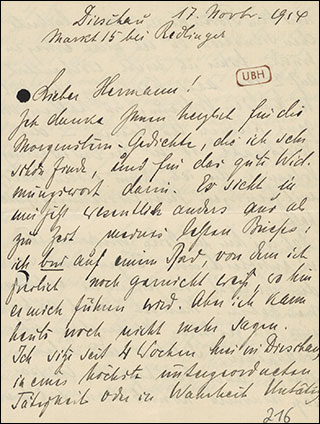 Dirschau 17. Novbr. 1914
Markt 15 bei Redlinger
UBH
Lieber Hermann!
Ich danke Ihnen herzlich für die
Morgenstern-Gedichte, die ich sehr
schön finde, und für das gute Wid-
mungswort darin. Es sieht in
mir jetzt wesentlich anders aus als
zur Zeit meines letzten Briefes:
ich bin auf einem Pfad, von dem ich
freilich noch garnicht weiß, wohin
er mich führen wird. Aber ich kann
heute noch nicht mehr sagen.
Ich sitze seit 4 Wochen hier in Dirschau
in einer höchst untergeordneten
Tätigkeit oder in Wahrheit Untätig
216